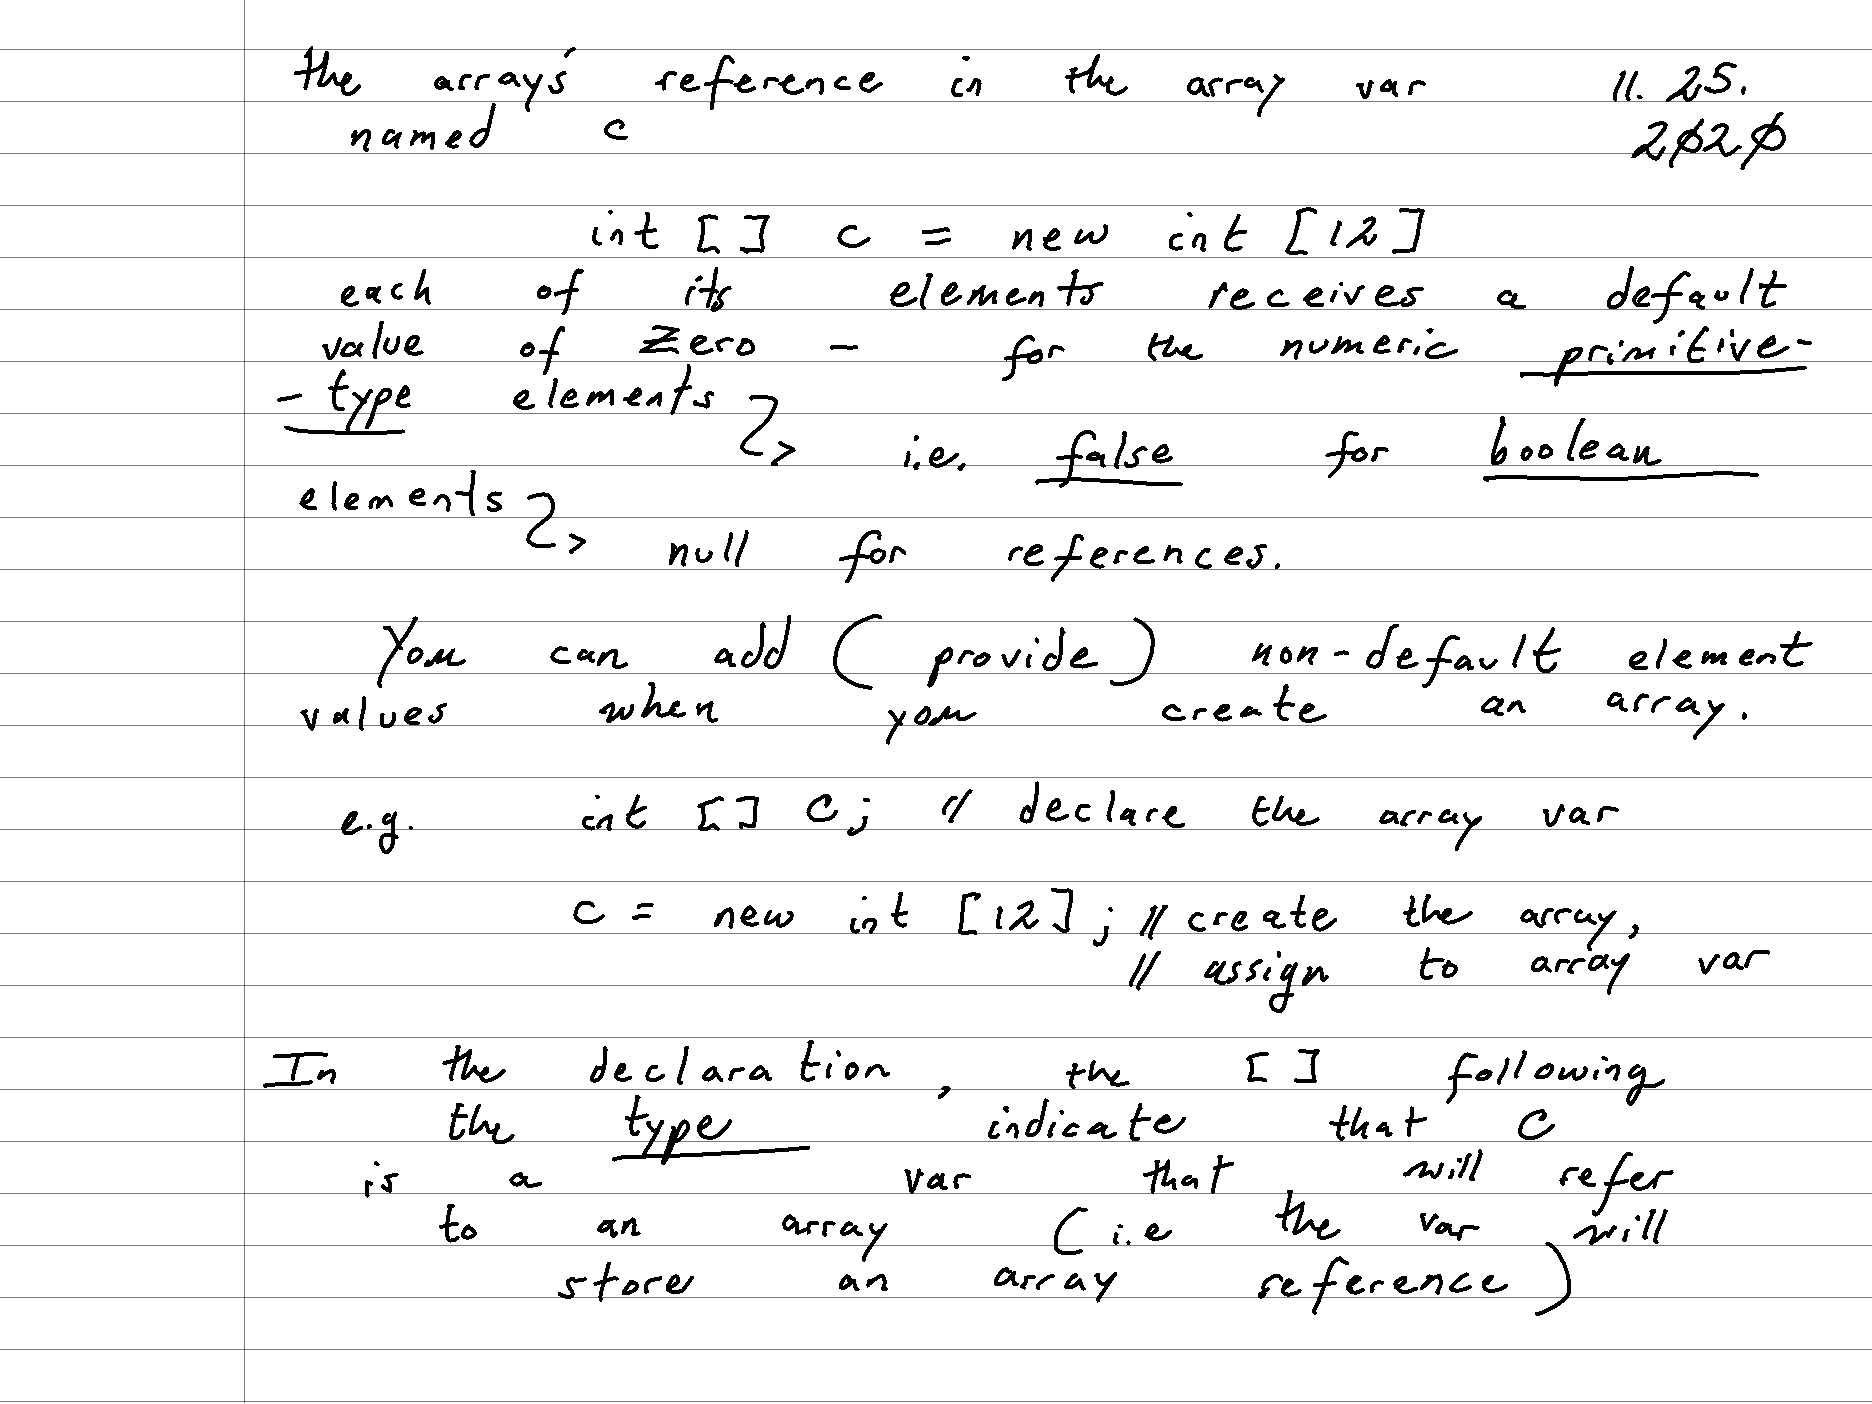 the array's reference in the array var 11. 25.
named c 2020
int [ ] c = new int [12]
each of its elements receives a default
value of zero - for the numeric primitive-
- type elements
i.e. false for boolean
elements
null for references.
You can add ( provide ) non-default element
values when you create an array.
e.g. int [ ] c; // declare the array var
c = new int [12]; // create the array,
// assign to array var
In the declaration, the [ ] following
the type indicate that C
is a var that will refer
to an array ( i.e the var will
store an array reference )